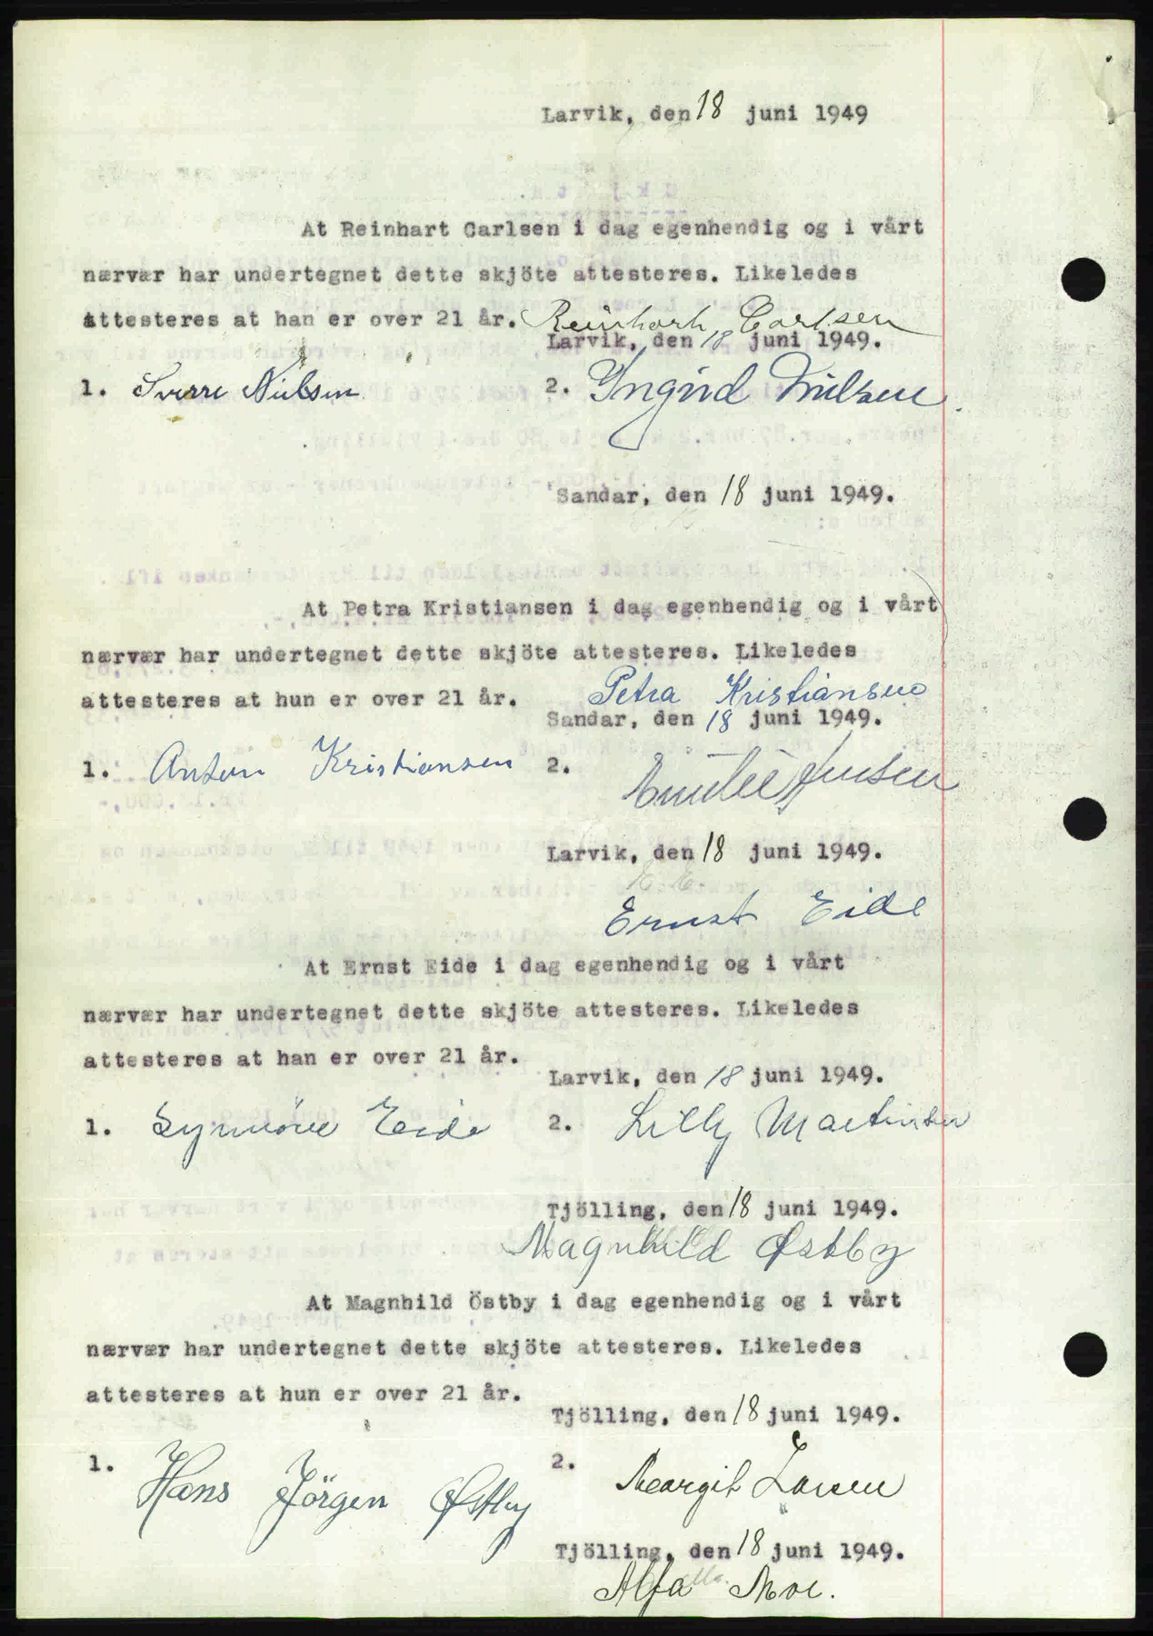 Larvik, den 18 juni 1949
At Reinhart Carlsen i dag egenhendig og i vårt
nærvær har undertegnet dette skjöte attesteres. Likeledes
attesteres at han er over 21 år. Reinhart Carlsen
Larvik, den 18 juni 1949.
1. Sverre Nielsen 2. Yngvid Nielsen
Sandar, den 18 juni 1949.
At Petra Kristiansen i dag egenhendig og i vårt
nærvær har undertegnet dette skjöte attesteres. Likeledes
attesteres at hun er over 21 år. Petra Kristiansen
Sandar, den 18 juni 1949.
1. Anton Kristiansen 2. Emilie Jensen
Larvik, den 18 juni 1949.
Ernst Eide
At Ernst Eide i dag egenhendig og i vårt
nærvær har undertegnet dette skjöte attesteres. Likeledes
attesteres at han er over 21 år.
Larvik, den 18 juni 1949.
1. Synnöve Eide 2. Lilly Martinsen
Tjölling, den 18 juni 1949.
Magnhild Østby
At Magnhild Östby i dag egenhendig og i vårt
nærvær har undertegnet dette skjöte attesteres. Likeledes
attesteres at hun er over 21 år.
Tjölling, den 18 juni 1949.
1. Hans Jörgen Østby 2. Margit Larsen
Tjölling, den 18 juni 1949.
Alfa Moe.